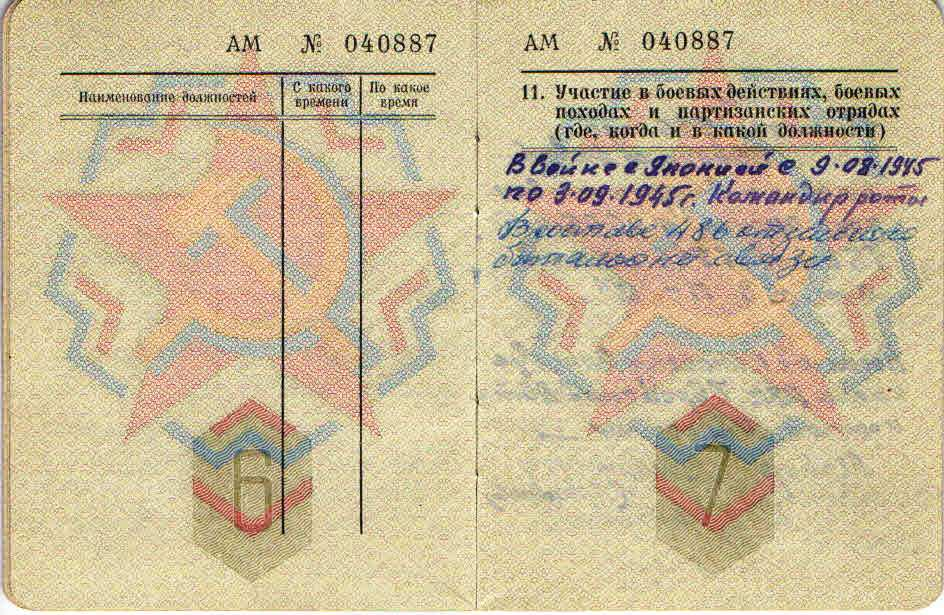 АМ № 040887
Наименование должностей
С какого времени
По какое время
6
АМ № 040887
11. Участие в боевых действиях, боевых
походах и партизанских отрядах
(где, когда и в какой должности)
В войне с Японией с 9.08.1945
по 3.09.1945г. Командир роты
В составе 486 отдельного
батальона связи
7